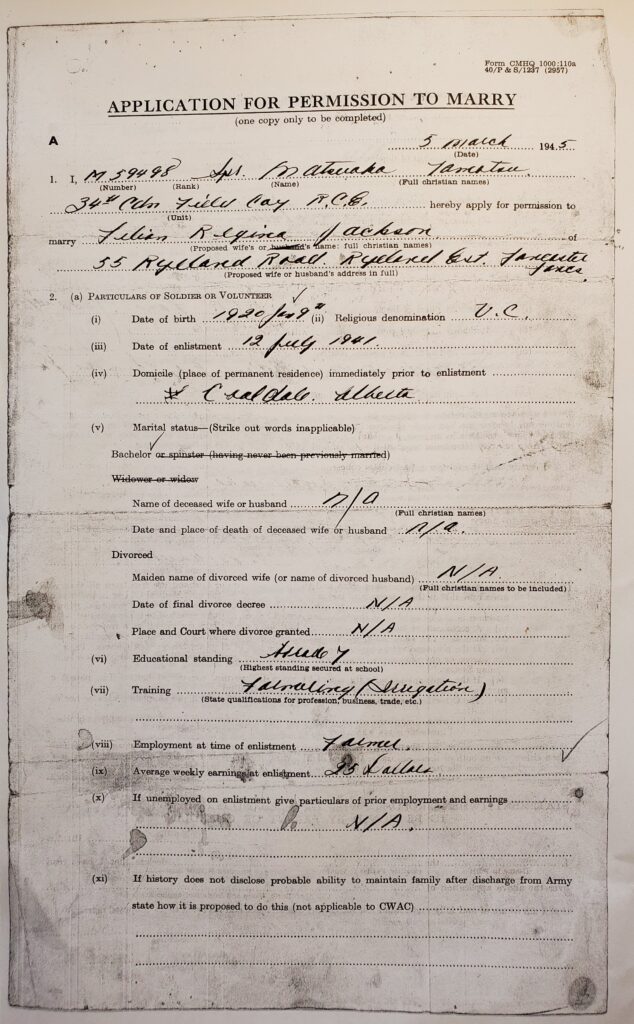 Form CMHQ 1000:110a
40/P & S/1237 (2957)
APPLICATION FOR PERMISSION TO MARRY
(one copy only to be completed)
A
5 March 1945
(Date)
1. I, M 59498 Spr. Matsuoka Tamotsu
(Number) (Rank) (Name) (Full christian names)
34th Cdn Field Coy R.C.E. hereby apply for permission to
(Unit)
marry Lilian Regina Jackson of
(Proposed wife's or husband's name: full christian names)
55 Ryeland Road Ryeland Est. Lancaster
Lancs.
(Proposed wife or husband's address in full)
2. (a) PARTICULARS OF SOLDIER OR VOLUNTEER
(i) Date of birth 1920 9th (ii) Religious denomination U.C.
(iii) Date of enlistment 12 July 1941.
(iv) Domicile (place of permanent residence) immediately prior to enlistment
Coaldale. Alberta
(v) Marital status—(Strike out words inapplicable)
Bachelor or spinster (having never been previously married)
Widower or widow
Name of deceased wife or husband N/A
(Full christian names)
Date and place of death of deceased wife or husband N/A.
Divorced
Maiden name of divorced wife (or name of divorced husband) N/A
(Full christian names to be included)
Date of final divorce decree N/A
Place and Court where divorce granted N/A
(vi) Educational standing Grade 7
(Highest standing secured at school)
(vii) Training (Irrigation)
(State qualifications for profession, business, trade, etc.)
(viii) Employment at time of enlistment Farmer
(ix) Average weekly earnings at enlistment 25 Dollars
(x) If unemployed on enlistment give particulars of prior employment and earnings
N/A.
(xi) If history does not disclose probable ability to maintain family after discharge from Army
state how it is proposed to do this (not applicable to CWAC)